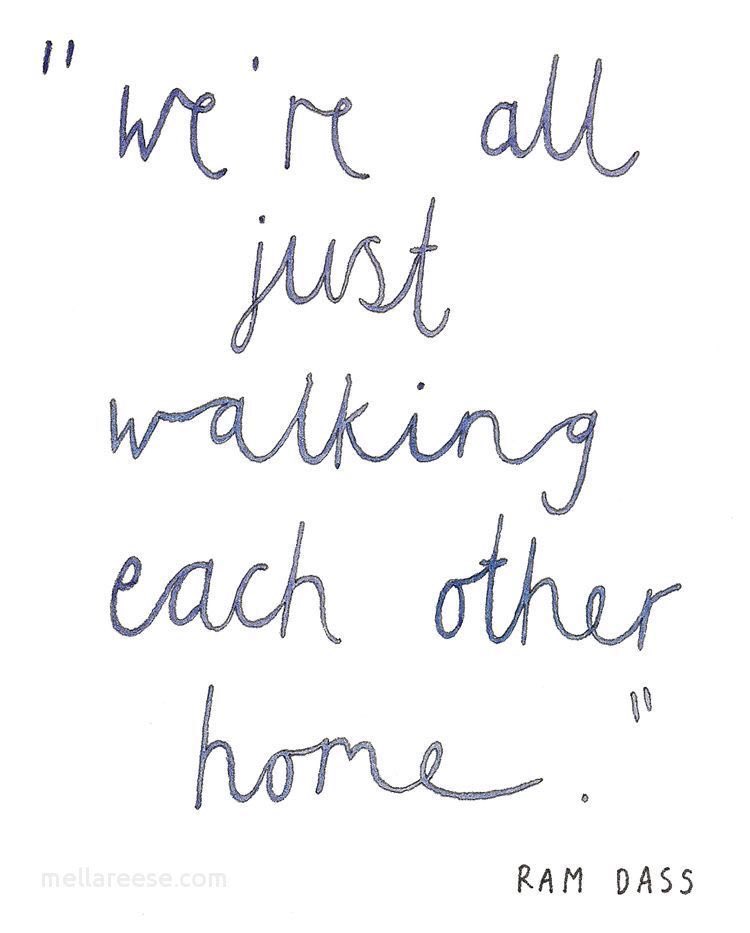 "we're all
just
walking
each other
home."
RAM DASS
mellareese.com